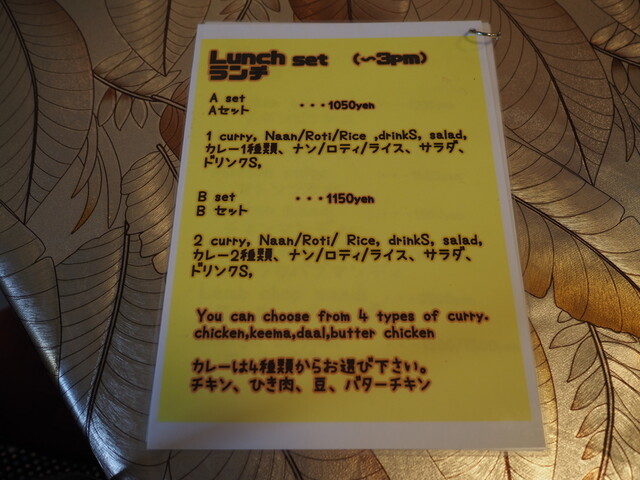 Lunch set (~3pm)
ランチ
A set ・・・1050yen
Aセット
1 curry, Naan/Roti/Rice ,drinkS, salad,
カレー1種類、ナン/ロティ/ライス、サラダ、
ドリンクS,
B set ・・・1150yen
B セット
2 curry, Naan/Roti/ Rice, drinkS, salad,
カレー2種類、ナン/ロティ/ライス、サラダ、
ドリンクS,
You can choose from 4 types of curry.
chicken,keema,daal,butter chicken
カレーは4種類からお選び下さい。
チキン、ひき肉、豆、バターチキン